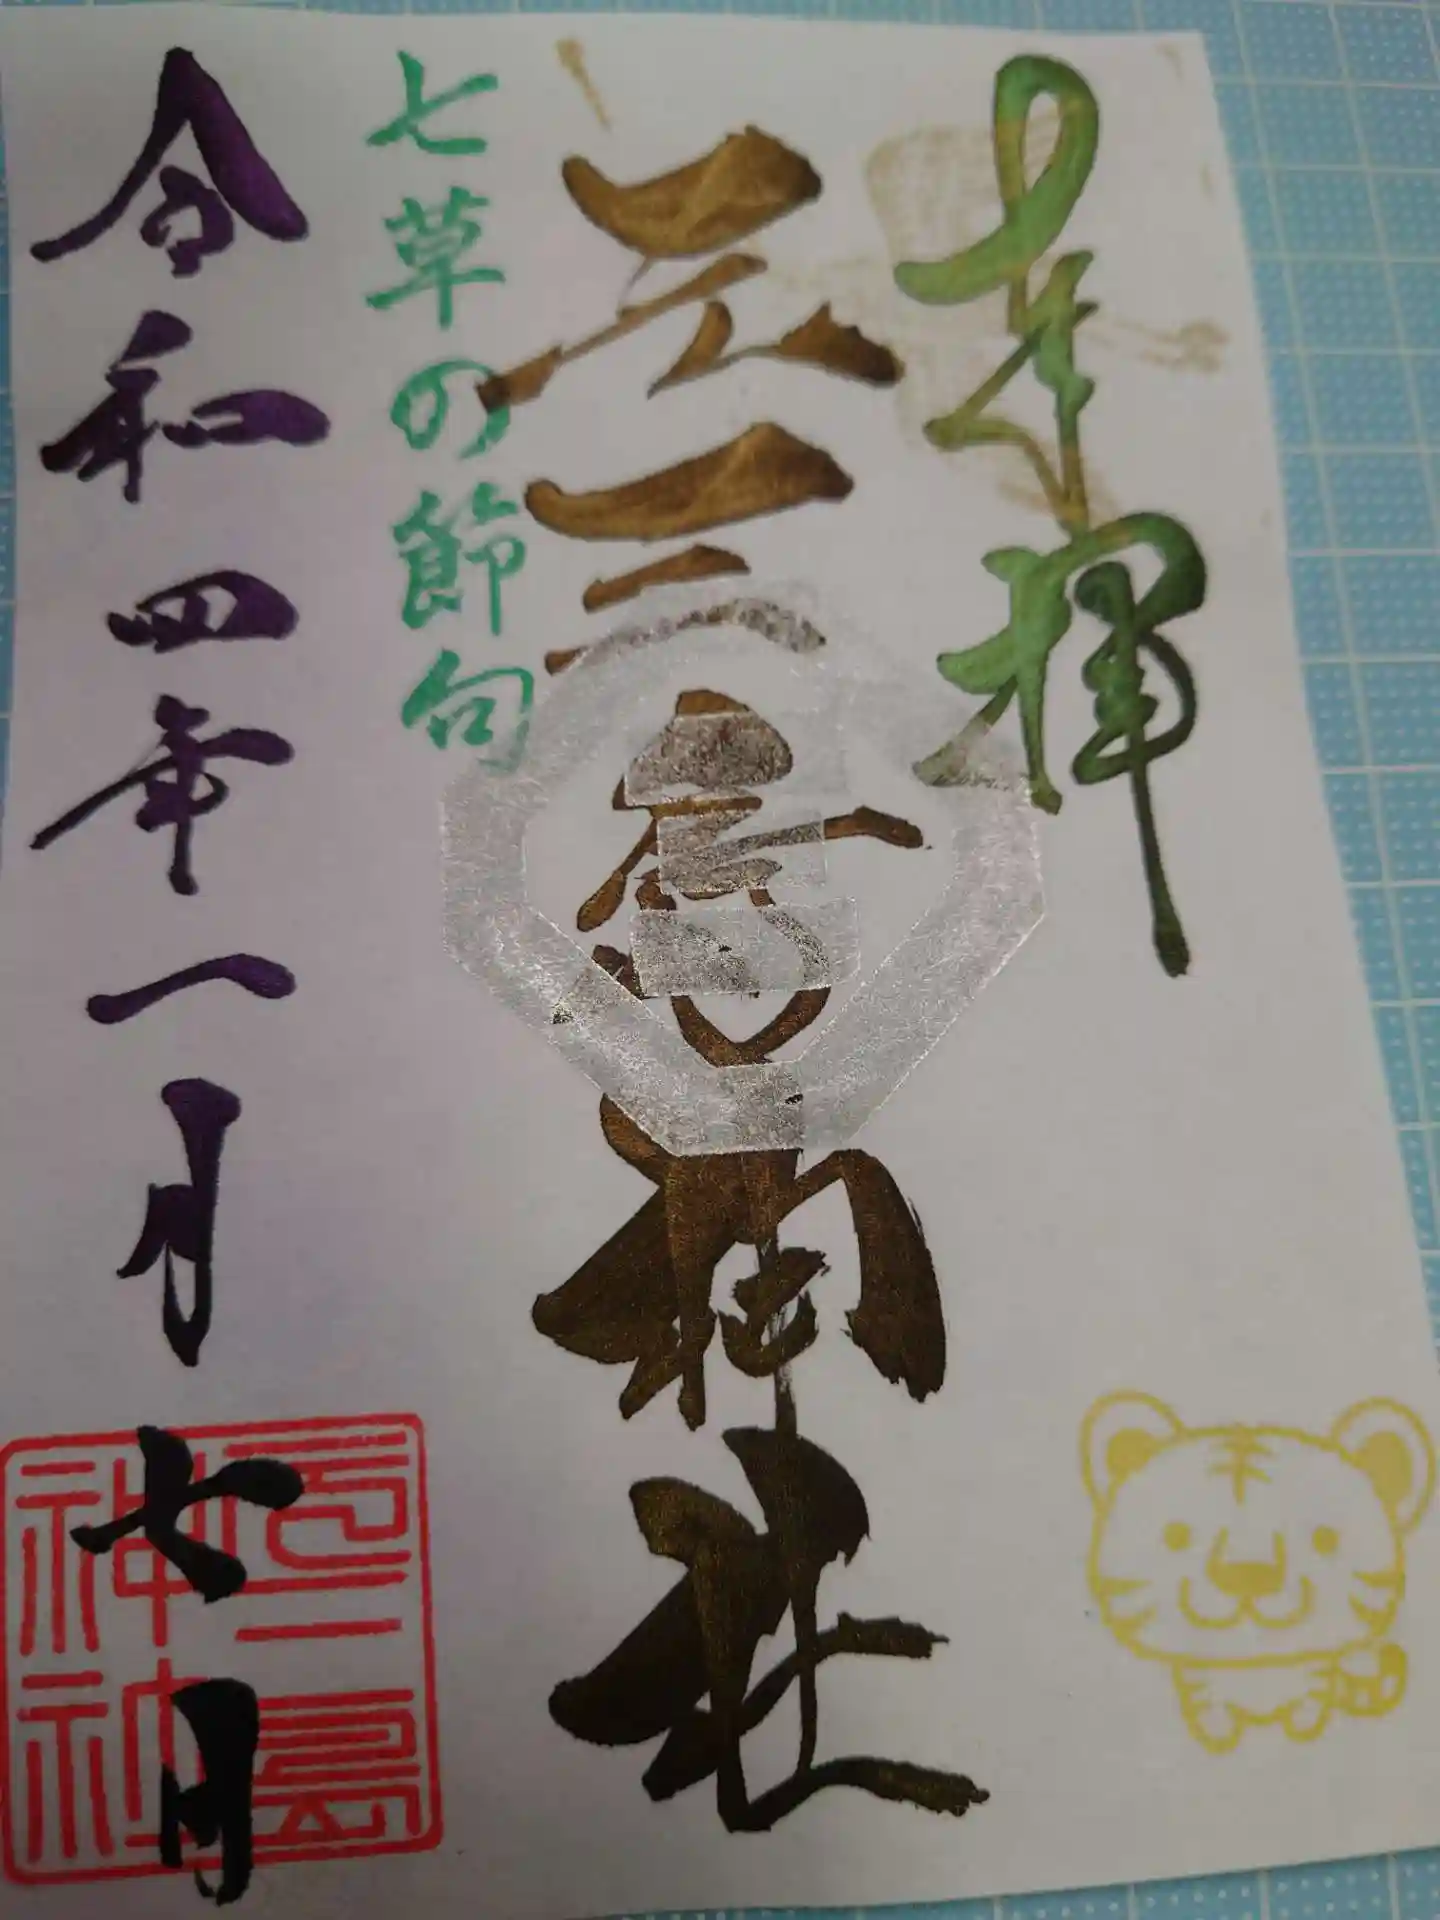 奉拝
元三島神社
七草の節句
令和四年一月七日
元三島
神社